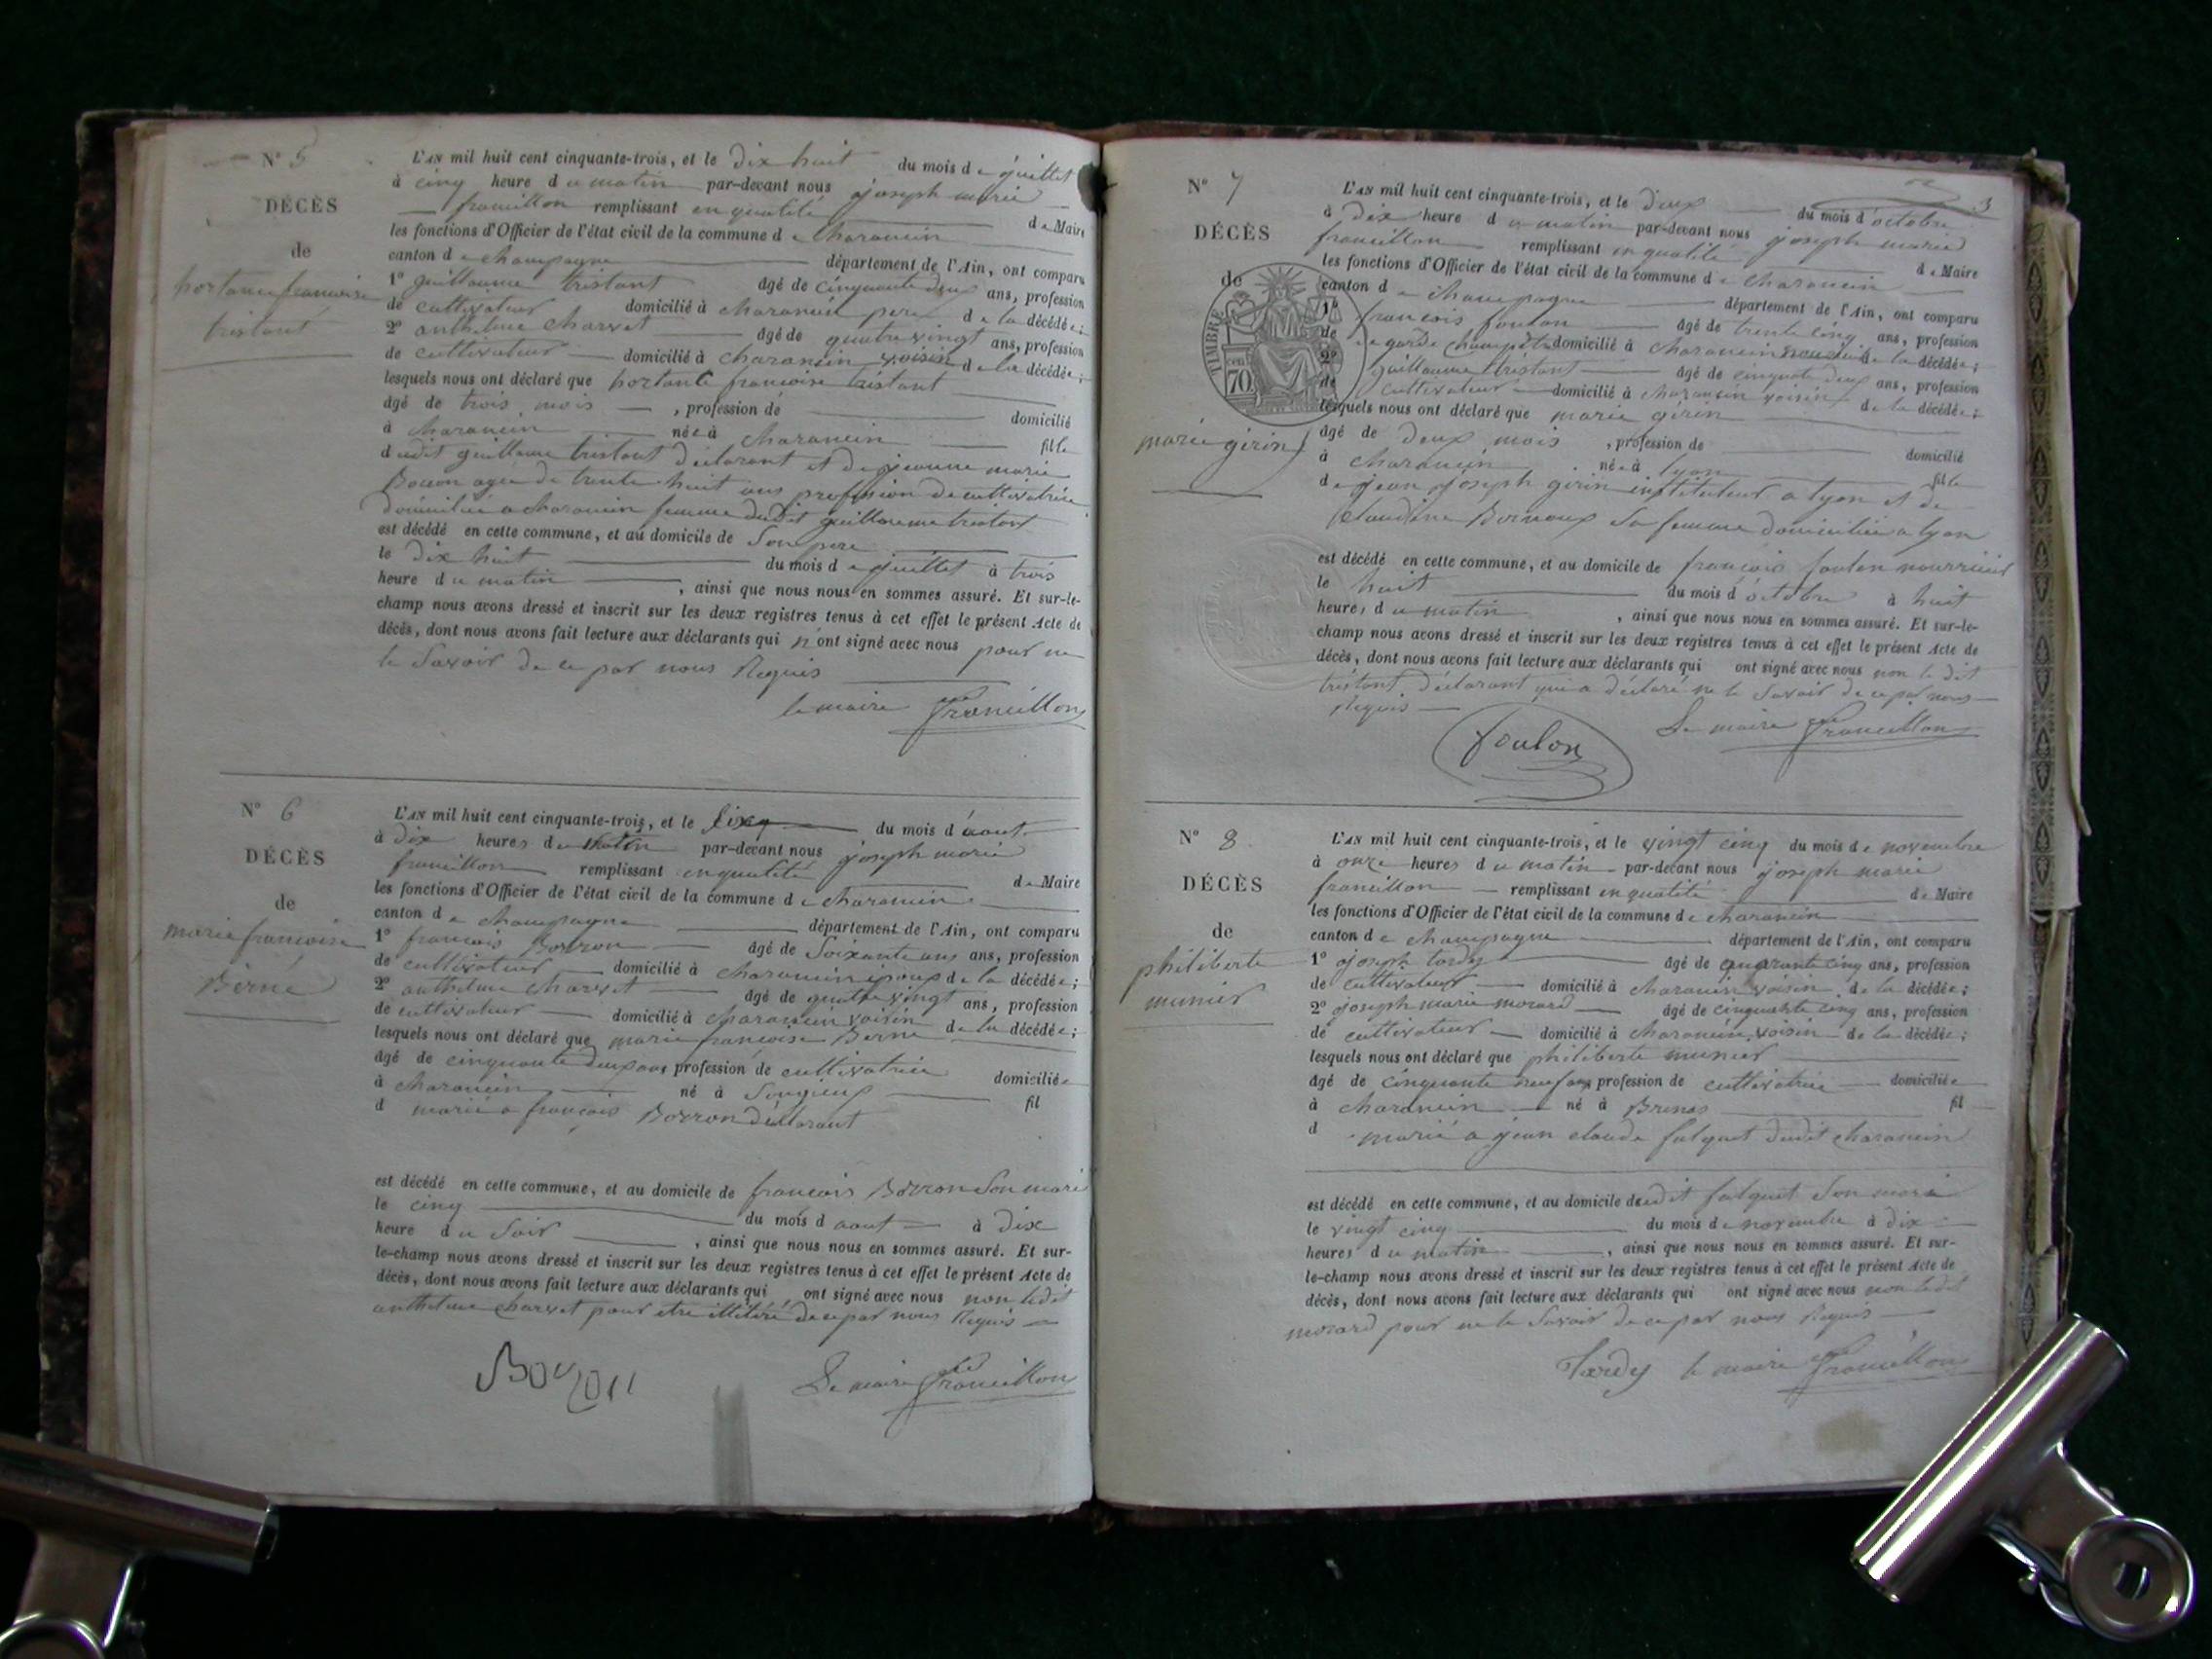 N° 5
DÉCÈS
de
hortance francoise
tristant
L'AN mil huit cent cinquante-trois, et le dix huit du mois de juillet
à cinq heure du matin par-devant nous joseph marie
francillon remplissant en qualité de Maire
les fonctions d'Officier de l'état civil de la commune de charancin
canton de champagne département de l'Ain, ont comparu
1° guillaume tristant âgé de cinquante deux ans, profession
de cultivateur domicilié à charancin pere de la décédée;
2° anthelme charvet âgé de quatre vingt ans, profession
de cultivateur domicilié à charancin voisin de la décédée;
lesquels nous ont déclaré que hortance francoise tristant
âgé de trois mois , profession de domicilié
à charancin née à charancin fille
dudit guillaume tristant déclarant et de jeanne marie
agée de trente huit ans profession de cultivatrice
domiciliée a charancin femme dudit guillaume tristant
est décédé en cette commune, et au domicile de son pere
le dix huit du mois de juillet à trois
heure du matin , ainsi que nous nous en sommes assuré. Et sur-le-
champ nous avons dressé et inscrit sur les deux registres tenus à cet effet le présent Acte de
décès, dont nous avons fait lecture aux déclarants qui n'ont signé avec nous pour ne
le savoir de ce par nous Requis
le maire Francillon
N° 6
DÉCÈS
de
marie francoise
Berne
L'AN mil huit cent cinquante-trois, et le six du mois d'aout
à dix heures du matin par-devant nous joseph marie
francillon remplissant en qualité de Maire
les fonctions d'Officier de l'état civil de la commune de charancin
canton de champagne département de l'Ain, ont comparu
1° francois Borron âgé de soixante ans ans, profession
de cultivateur domicilié à charancin époux de la décédée;
2° anthelme charvet âgé de quatre vingt ans, profession
de cultivateur domicilié à charancin voisin de la décédée;
lesquels nous ont déclaré que marie françoise Berne
âgé de cinquante deux ans profession de cultivatrice domiciliée
à charancin né à Songieux fil
d marié a françois Borron déclarant
est décédé en cette commune, et au domicile de francois Borron son mari
le cinq du mois d aout à dix
heure du soir , ainsi que nous nous en sommes assuré. Et sur-
le-champ nous avons dressé et inscrit sur les deux registres tenus à cet effet le présent Acte de
décès, dont nous avons fait lecture aux déclarants qui ont signé avec nous non ledit
anthelme charvet pour etre illétéré de ce par nous Requis
Le maire Francillon
3
N° 7
DÉCÈS
de
TIMBRE
70
marie girin
L'AN mil huit cent cinquante-trois, et le deux du mois d'octobre
à dix heure du matin par-devant nous joseph marie
francillon remplissant en qualité de Maire
les fonctions d'Officier de l'état civil de la commune de charancin
canton de champagne département de l'Ain, ont comparu
1° francois foulon âgé de trente cinq ans, profession
de garde champetre domicilié à charancin de la décédée;
2° guillaume tristant âgé de cinquate deux ans, profession
de cultivateur domicilié à charancin voisin de la décédée;
lesquels nous ont déclaré que marie girin
âgé de deux mois , profession de domicilié
à charancin née à lyon fille
de jean joseph girin instituteur a lyon et de
claudine sa femme domiciliée a lyon
est décédé en cette commune, et au domicile de françois foulon nourricier
le huit du mois d'octobre à huit
heures du matin , ainsi que nous nous en sommes assuré. Et sur-le-
champ nous avons dressé et inscrit sur les deux registres tenus à cet effet le présent Acte de
décès, dont nous avons fait lecture aux déclarants qui ont signé avec nous non le dit
tristant déclarant qui a déclaré ne le savoir de ce par nous
Requis
Le maire Francillon
foulon
N° 8
DÉCÈS
de
philiberte
munier
L'AN mil huit cent cinquante-trois, et le vingt cinq du mois de novembre
à onze heures du matin par-devant nous joseph marie
francillon remplissant en qualité de Maire
les fonctions d'Officier de l'état civil de la commune de charancin
canton de champagne département de l'Ain, ont comparu
1° joseph tardy âgé de quarante cinq ans, profession
de cultivateur domicilié à charancin voisin de la décédée;
2° joseph marie morard âgé de cinquante cinq ans, profession
de cultivateur domicilié à charancin voisin de la décédée;
lesquels nous ont déclaré que philiberte munier
âgé de cinquante neuf ans profession de cultivatrice domiciliée
à charancin né à Brenas fil
d marié a jean claude falquet dudit charancin
est décédé en cette commune, et au domicile dudit falquet son mari
le vingt cinq du mois de novembre à dix
heures du matin , ainsi que nous nous en sommes assuré. Et sur-
le-champ nous avons dressé et inscrit sur les deux registres tenus à cet effet le présent Acte de
décès, dont nous avons fait lecture aux déclarants qui ont signé avec nous non ledit
morard pour ne le savoir de ce par nous Requis
Tardy le maire Francillon